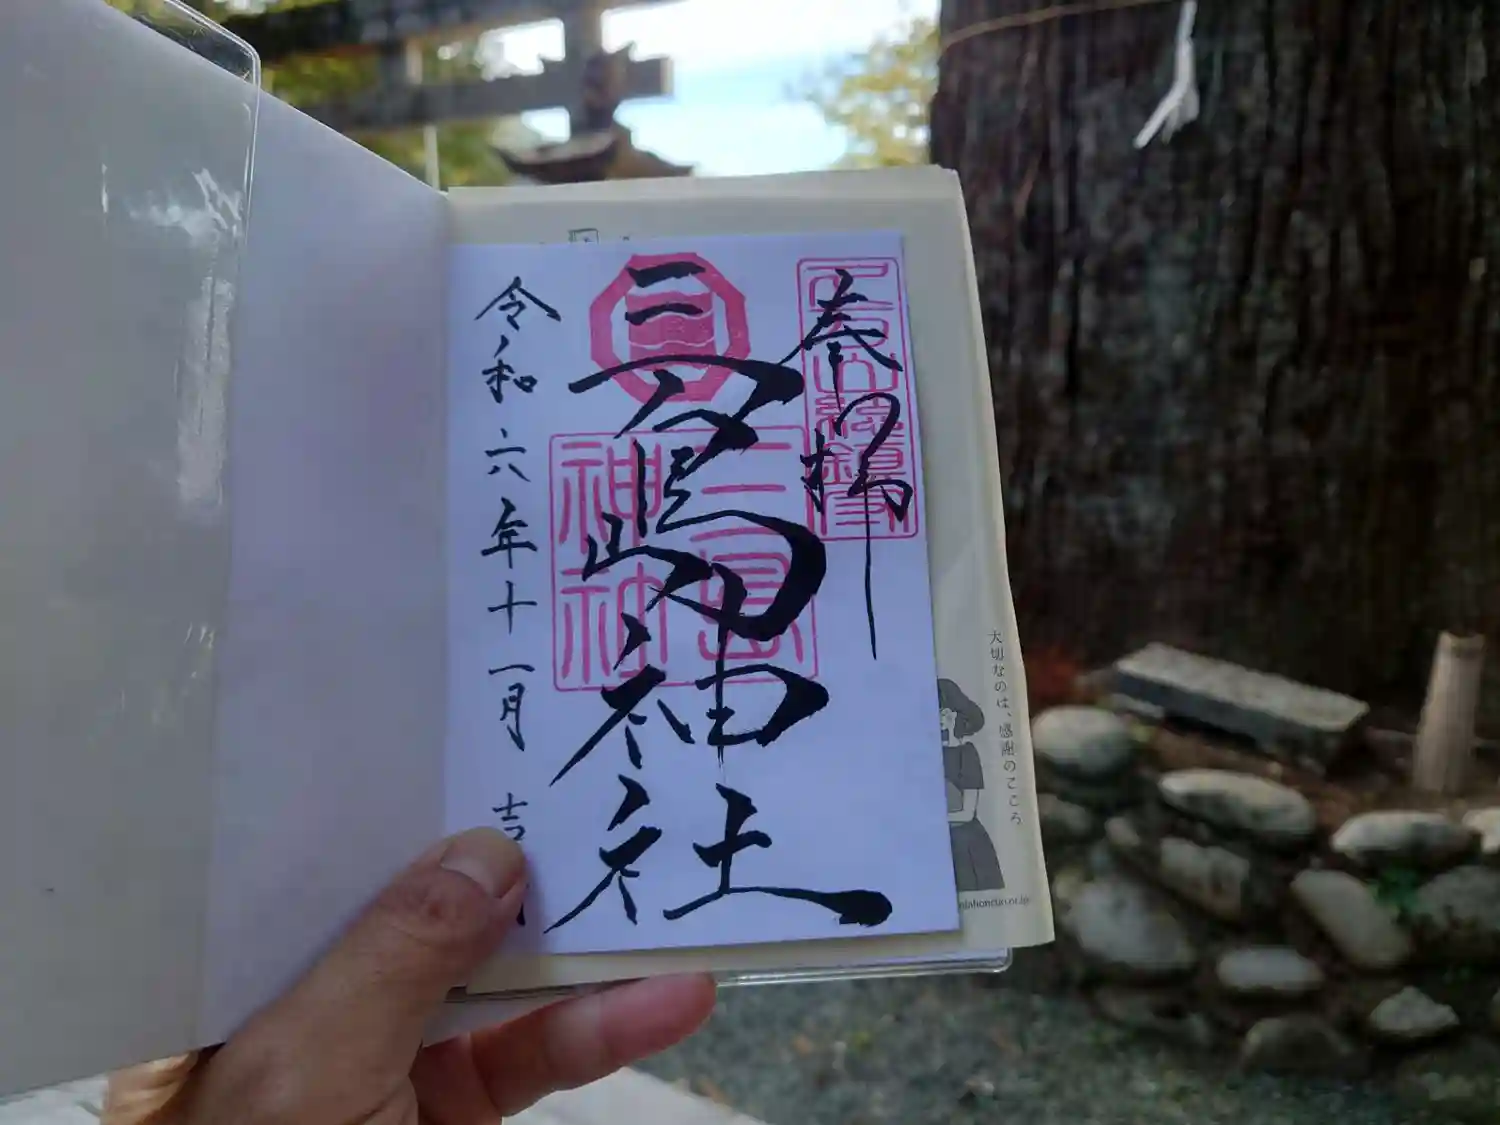 奉拝
三嶋神社
令和六年十一月吉
三島
神社
大切なのは、感謝のこころ